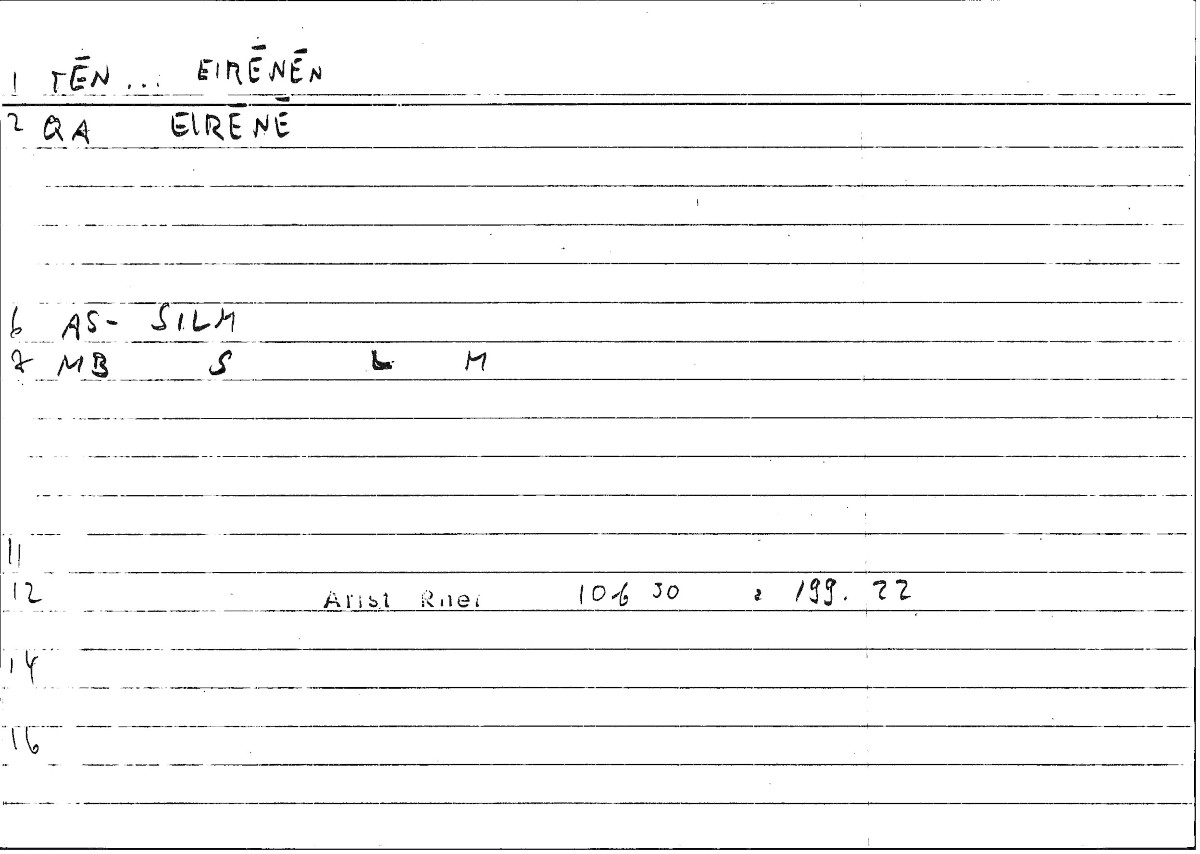 1 TĒN ... EIRĒNĒN
2 QA EIRĒNĒ
6 AS- SILM
7 MB S L M
11
12 Arist Rhet 10b 30 : 199. 22
14
16